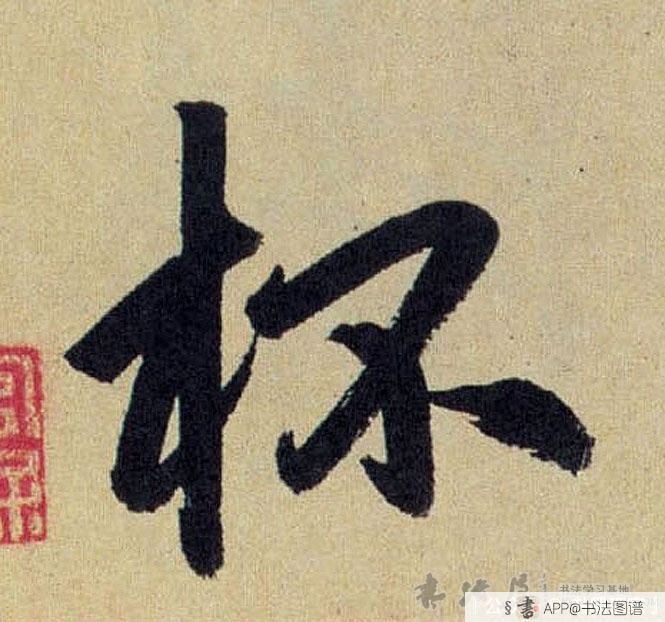 杯
书法学习基地
APP@书法图谱